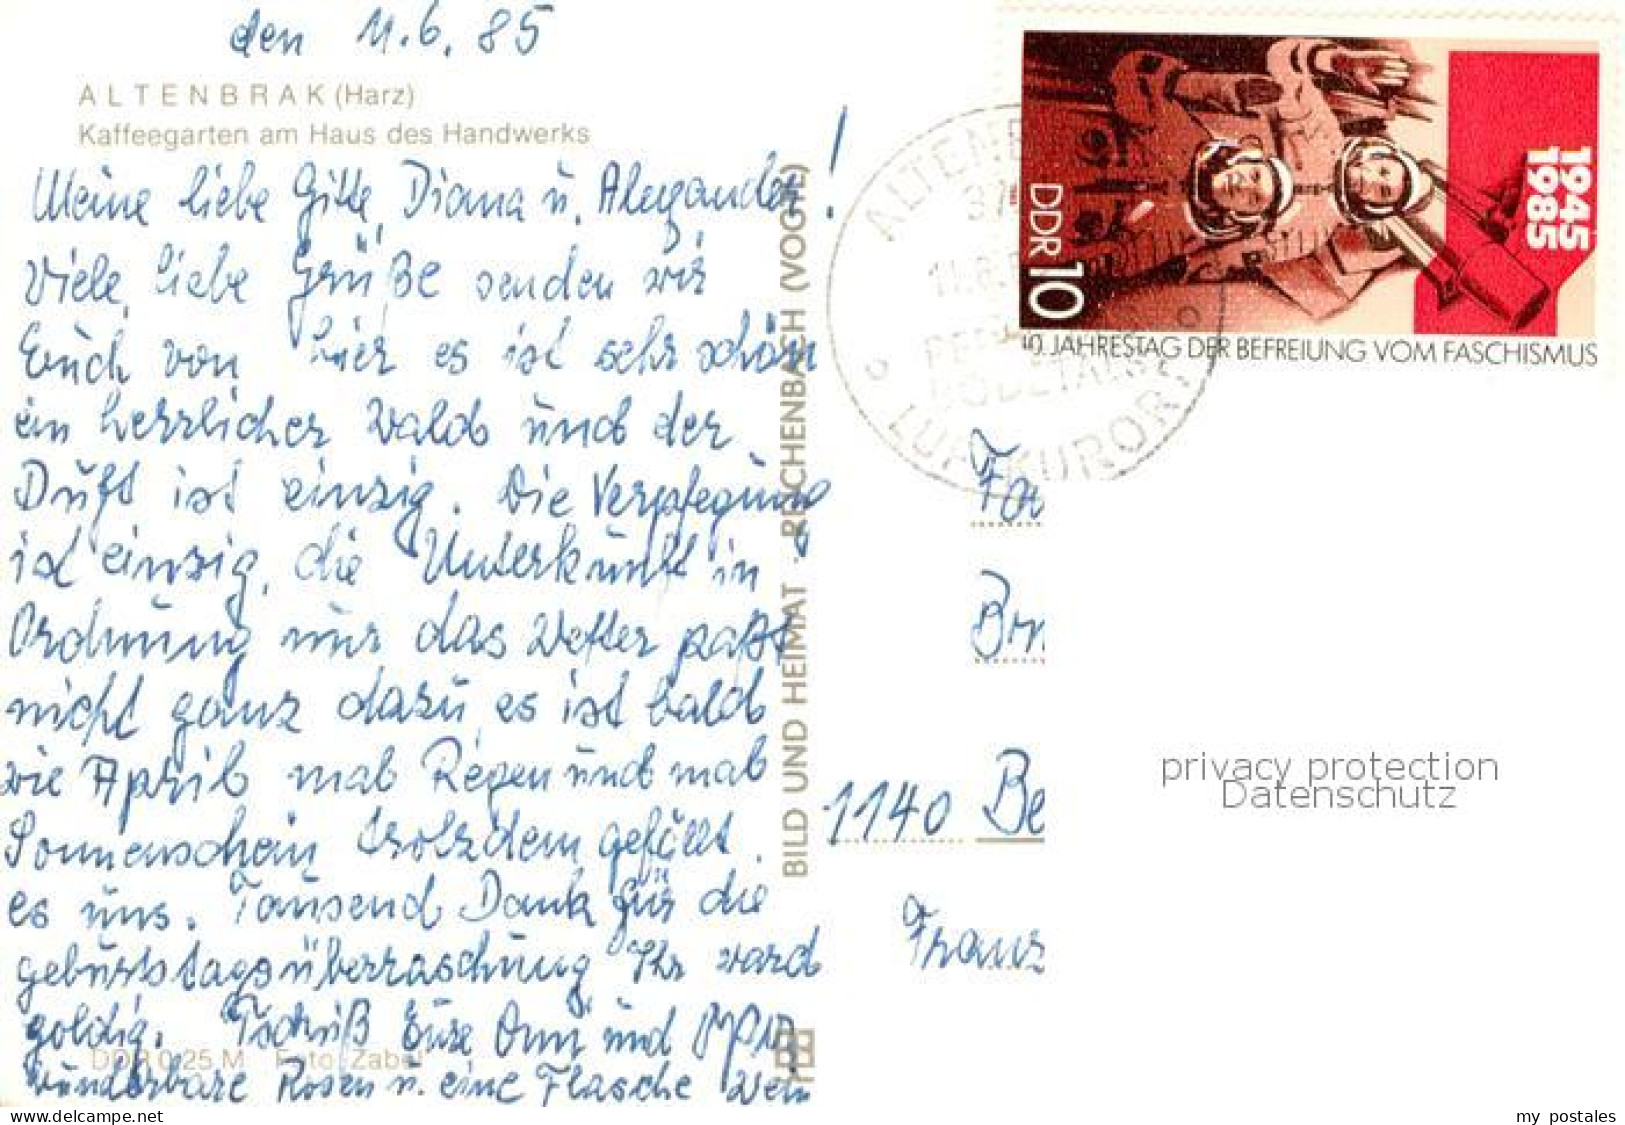 den 11.6.85
ALTENBRAK (Harz)
Kaffeegarten am Haus des Handwerks
Meine liebe Gitte, Diana u. Alexander!
Viele liebe Grüße senden wir
Euch von hier es ist sehr schön
ein herrlicher Wald und der
Duft ist einzig. Die Verpflegung
ist einzig, die Unterkunft in
Ordnung nur das Wetter paßt
nicht ganz dazu es ist bald
wie April mal Regen und mal
Sonnenschein trotzdem gefällt
es uns. Tausend Dank für die
geburtstagsüberraschung Ihr ward
goldig. Tschüß Eure Omi und
wunderbare Rosen u. eine Flasche Wein
DDR 0,25 M Foto: Zabel
BILD UND HEIMAT · REICHENBACH (VOGTL)
1945
1985
DDR 10
40. JAHRESTAG DER BEFREIUNG VOM FASCHISMUS
ALTENB
37
11.6.
LUFTKURORT
Fa
1140 Be
Franz
privacy protection
Datenschutz
www.delcampe.net
my_postales